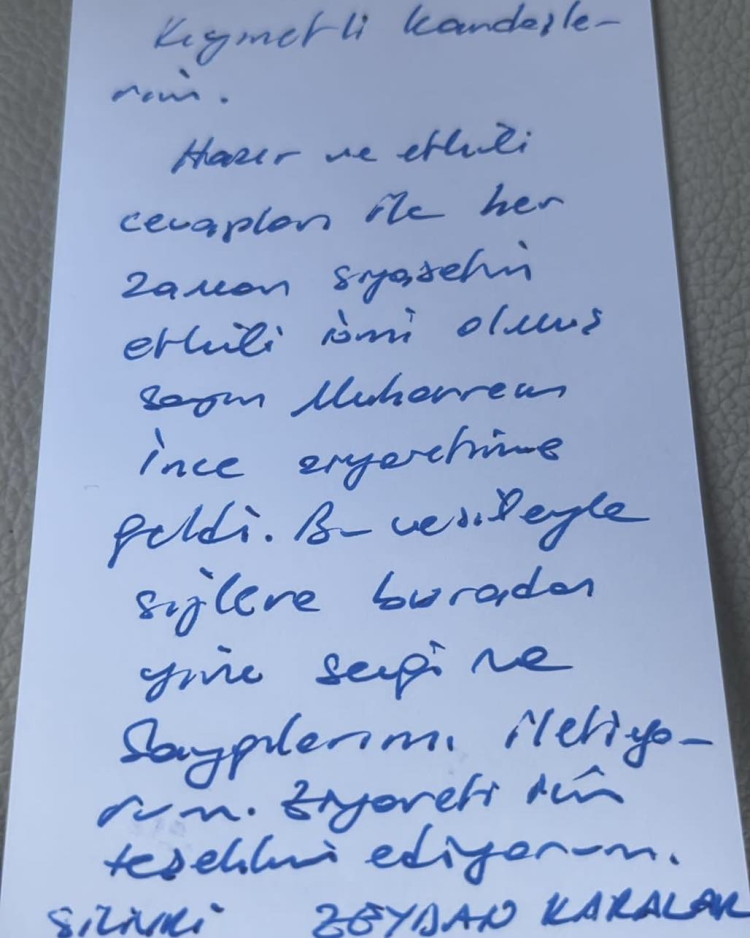 Kıymetli kardeşle-
rim.
Hazır ve etkili
cevapları ile her
zaman siyasetin
etkili ismi olmuş
Sayın Muharrem
İnce ziyaretime
geldi. Bu vesileyle
sizlere buradan
yine sevgi ve
Saygılarımı iletiyo-
rum. Ziyareti için
teşekkür ediyorum.
SİLİVRİ ZEYDAN KARALAR